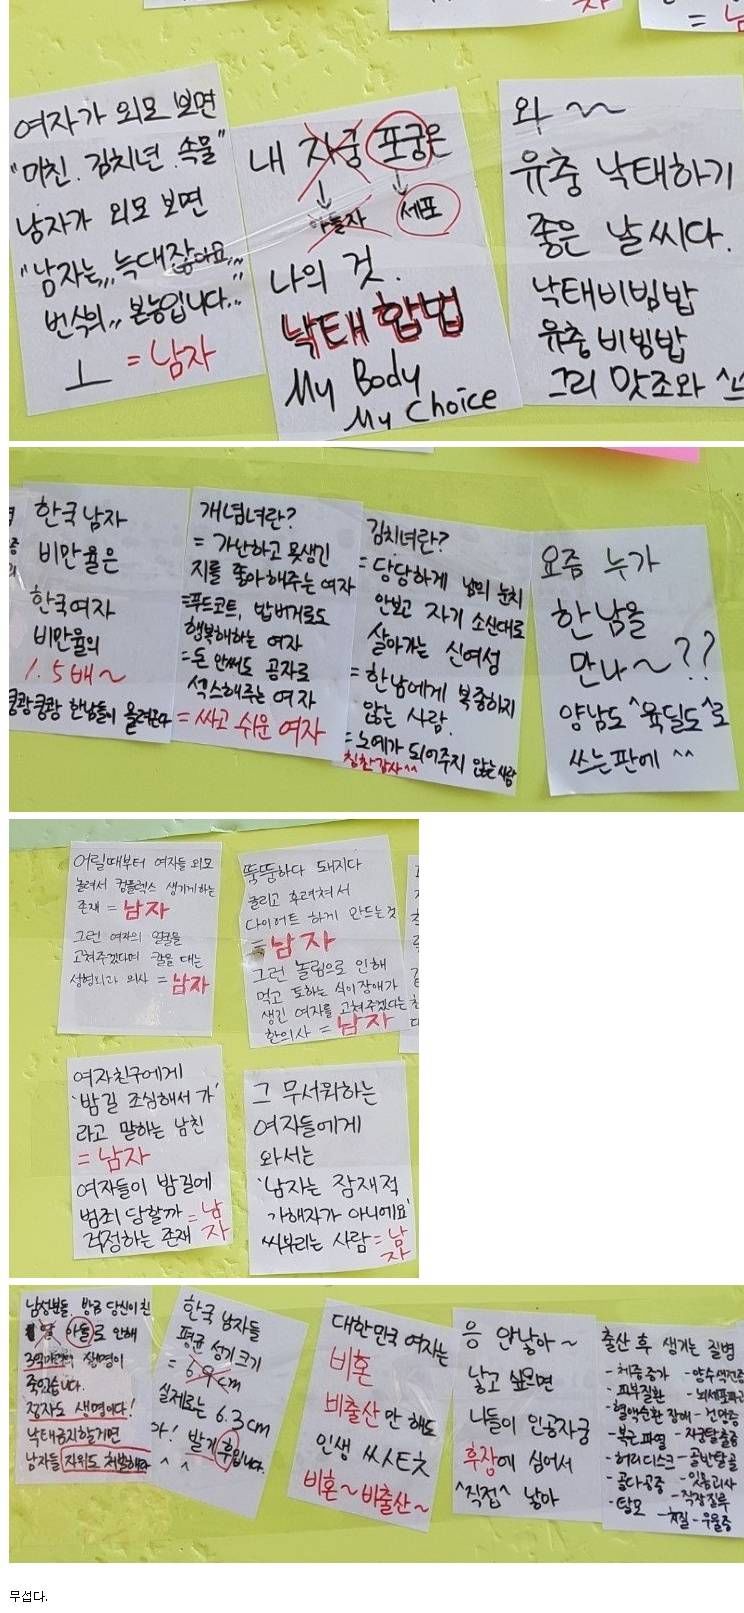 여자가 외모 보면
"미친. 김치년 속물"
남자가 외모 보면
"남자는,,, 늑대잖아요,,,
번식의,, 본능입니다.."
ㅗ = 남자
내 자궁 포궁은
세포
나의 것.
낙태 합법
My Body
My Choice
와 ~~
유충 낙태하기
좋은 날씨다.
낙태비빔밥
유충비빔밥
그리 맛조와
한국남자
비만율은
한국여자
비만율의
1.5배~
쿵쾅쿵쾅 한남들이 몰려온다
개념녀란?
= 가난하고 못생긴
지를 좋아해주는 여자
=푸드코트, 밥버거로도
행복해하는 여자
=돈 안써도 공짜로
섹스해주는 여자
= 싸고 쉬운 여자
김치녀란?
= 당당하게 남의 눈치
안보고 자기 소신대로
살아가는 신여성
= 한남에게 복종하지
않는 사람.
= 노예가 되어주지 않는 사람
칭찬감사^^
요즘 누가
한남을
만나~??
양남도 ^육딜도^로
쓰는판에 ^^
어릴때부터 여자들 외모
놀려서 컴플렉스 생기게하는
존재 = 남자
그런 여자의 얼굴을
고쳐주겠다며 칼을 대는
성형외과 의사 = 남자
뚱뚱하다 돼지다
놀리고 후려쳐서
다이어트 하게 만드는것
= 남자
그런 놀림으로 인해
먹고 토하는 식이장애가
생긴 여자를 고쳐주겠다는
한의사 = 남자
여자친구에게
'밤길 조심해서 가'
라고 말하는 남친
= 남자
여자들이 밤길에
범죄 당할까 = 남자
걱정하는 존재
그 무서워하는
여자들에게
와서는
'남자는 잠재적
가해자가 아니에요'
씨부리는 사람 = 남자
남성분들, 방금 당신이 친
로 인해
생명이
죽었습니다.
정자도 생명이다!
낙태금지할거면
남자들 자위도 처벌해라
한국 남자들
평균 성기크기
= 6.9cm
실제로는 6.3cm
아! 발기 후입니다.
^ ^
대한민국 여자는
비혼
비출산만 해도
인생 씨스치
비혼~비출산~
응 안낳아~
낳고 싶으면
니들이 인공자궁
후장에 심어서
^직접^ 낳아
출산 후 생기는 질병
- 체중증가 - 양수색전증
- 피부질환 - 뇌세포파괴
- 혈액순환 장애 - 건망증
- 복근파열 - 자궁탈출증
- 허리디스크 - 골반탈골
- 골다공증 - 잇몸괴사
- 탈모 - 직장질루
- 치질 - 우울증
무섭다.